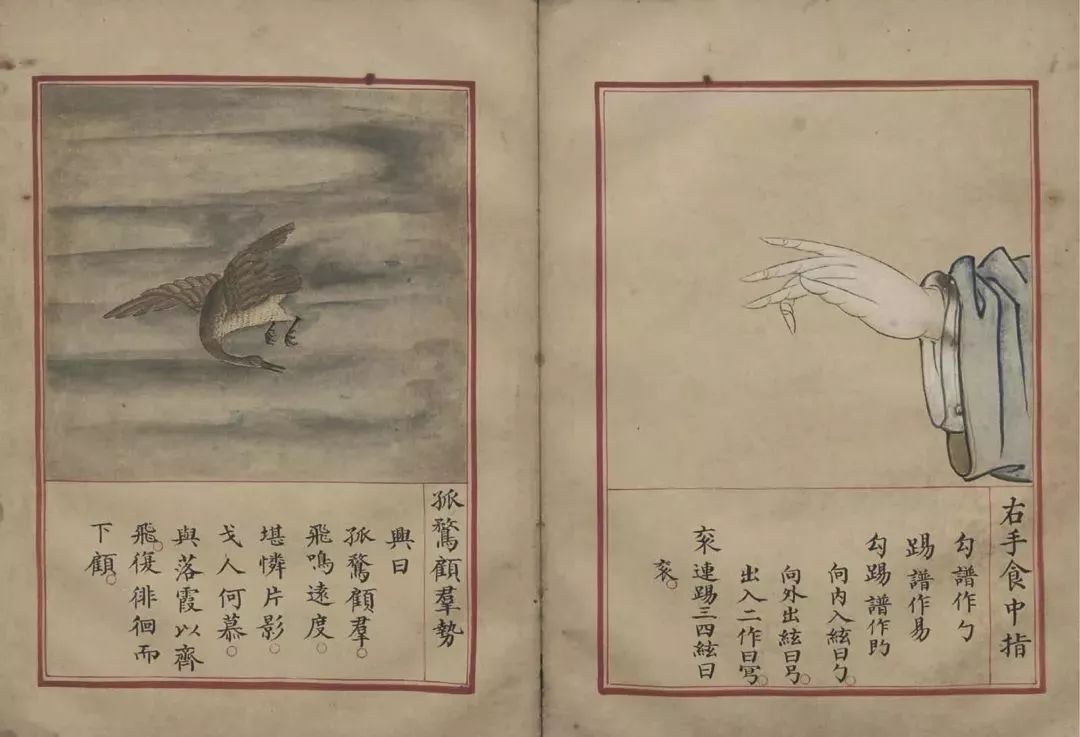 右手食中指
勾譜作勹
踢譜作易
勾踢譜作
向內入絃曰勹。
向外出絃曰
出入二作曰
衮連踢三四絃曰
衮。
孤鶩顧羣勢
興曰
孤鶩顧羣。
飛鳴遠度。
堪憐片影。
戈人何慕。
與落霞以齊
飛。復徘徊而
下顧。